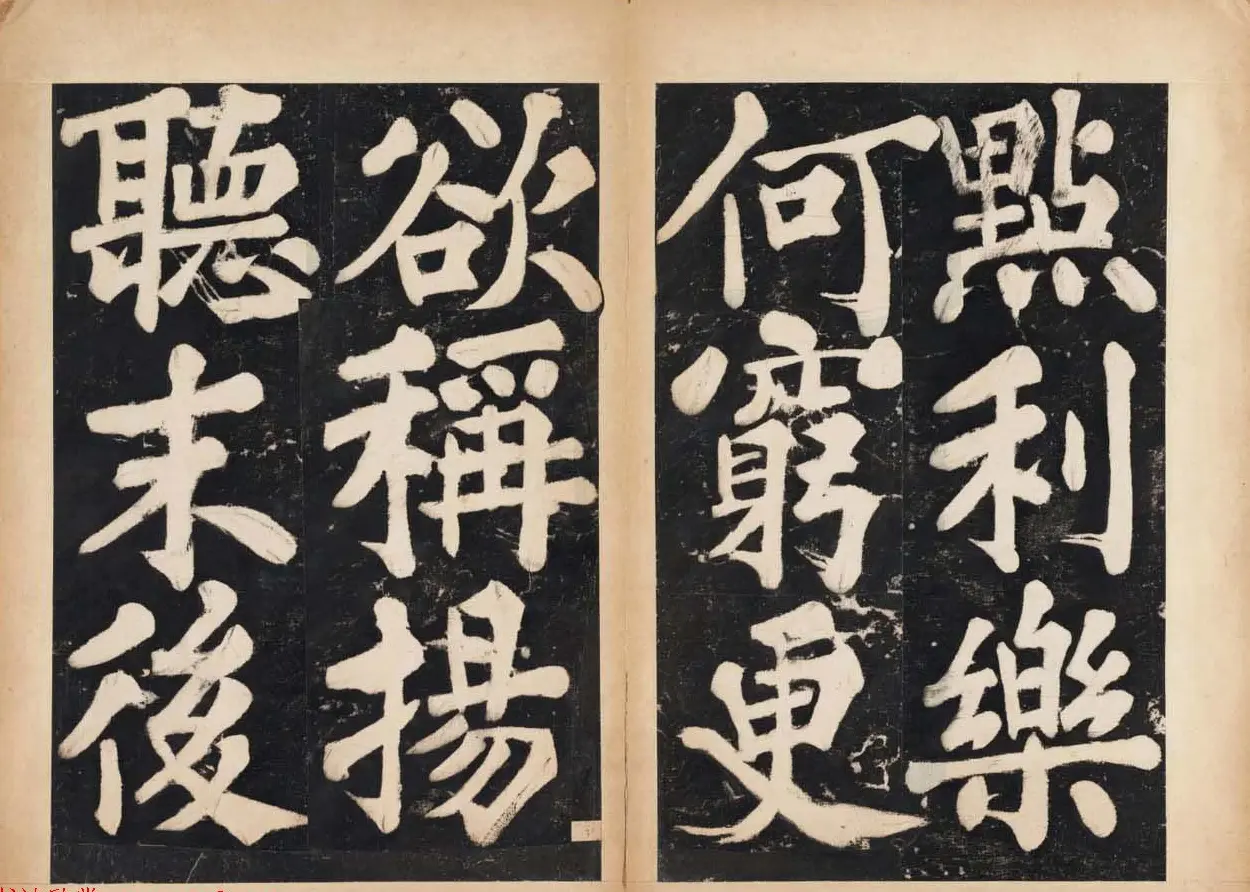 點利樂
何窮更
欲稱揚
聽末後